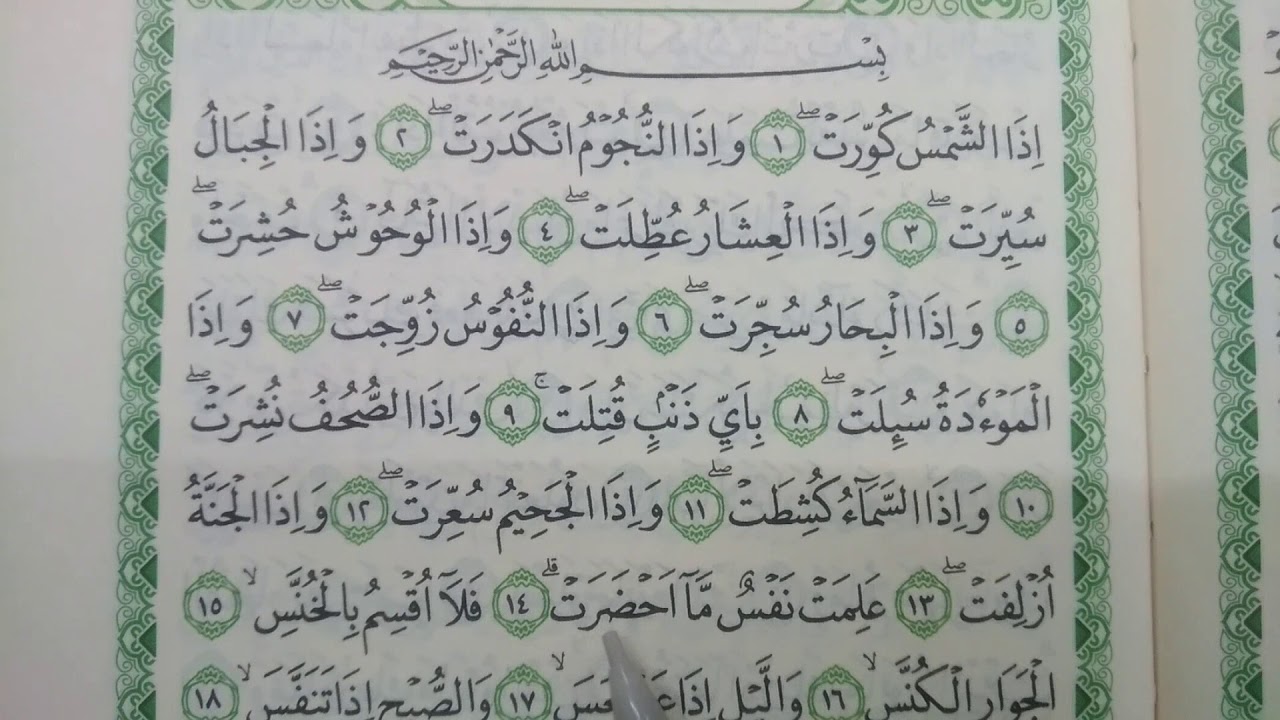 بِسْــــــمِ اللهِ الرَّحْمٰنِ الرَّحِيْمِ
اِذَا الشَّمْسُ كُوِّرَتْۖ ١ وَاِذَا النُّجُوْمُ انْكَدَرَتْۖ ٢ وَاِذَا الْجِبَالُ
سُيِّرَتْۖ ٣ وَاِذَا الْعِشَارُ عُطِّلَتْۖ ٤ وَاِذَا الْوُحُوْشُ حُشِرَتْۖ
٥ وَاِذَا الْبِحَارُ سُجِّرَتْۖ ٦ وَاِذَا النُّفُوْسُ زُوِّجَتْۖ ٧ وَاِذَا
الْمَوْءٗدَةُ سُىِٕلَتْۖ ٨ بِاَيِّ ذَنْۢبٍ قُتِلَتْۚ ٩ وَاِذَا الصُّحُفُ نُشِرَتْۖ
١٠ وَاِذَا السَّمَاۤءُ كُشِطَتْۖ ١١ وَاِذَا الْجَحِيْمُ سُعِّرَتْۖ ١٢ وَاِذَا الْجَنَّةُ
اُزْلِفَتْۖ ١٣ عَلِمَتْ نَفْسٌ مَّآ اَحْضَرَتْۗ ١٤ فَلَآ اُقْسِمُ بِالْخُنَّسِۙ ١٥
الْجَوَارِ الْكُنَّسِۙ ١٦ وَالَّيْلِ اِذَا ١٧ وَالصُّبْحِ اِذَا تَنَفَّسَۙ ١٨